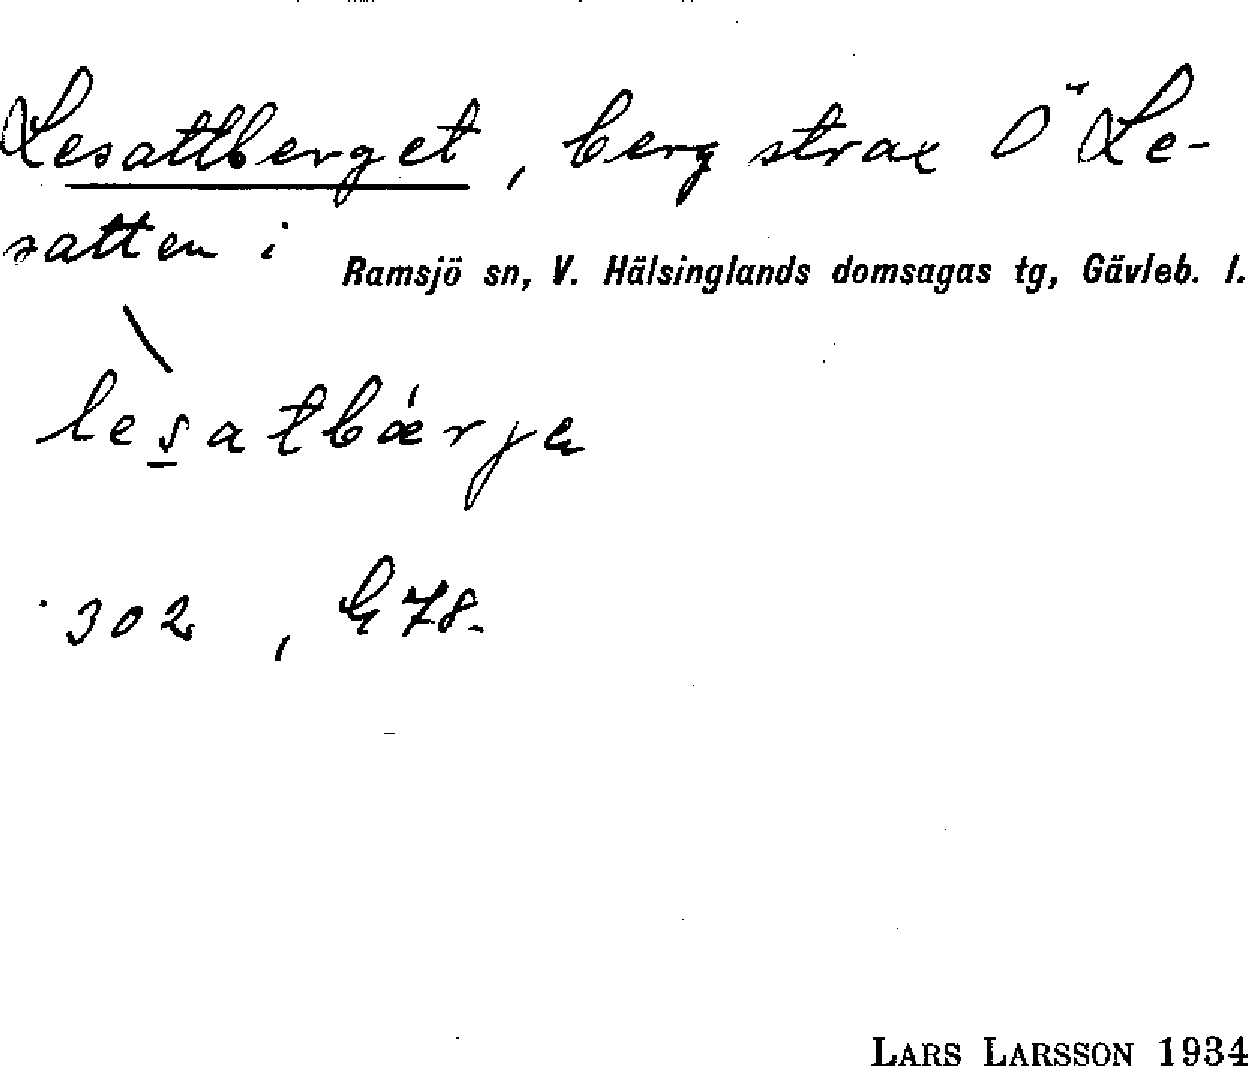 Lesattberget, berg strax Ö Le-
satten i Ramsjö sn, V. Hälsinglands domsagas tg, Gävleb. l.
lesatbærje
302, G78.
LARS LARSSON 1934